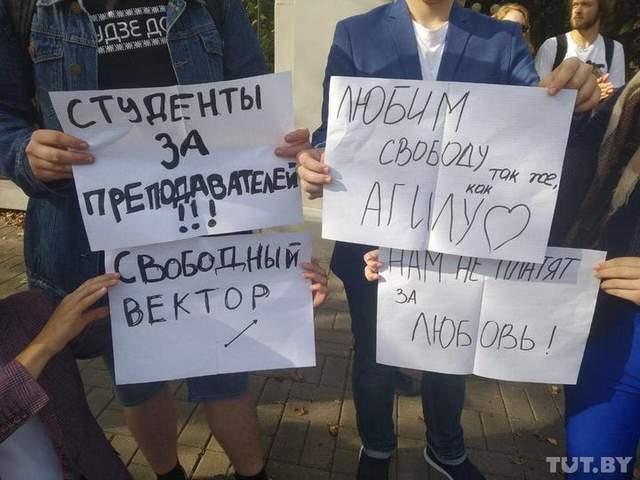 УДЗЕ ДО
СТУДЕНТЫ
ЗА
ПРЕПОДАВАТЕЛЕЙ
!!!
ЛЮБИМ
СВОБОДУ
так же,
как
АГИЛУ♡
СВОБОДНЫЙ
ВЕКТОР
НАМ НЕ ПЛАТЯТ
ЗА
ЛЮБОВЬ!
TUT.BY